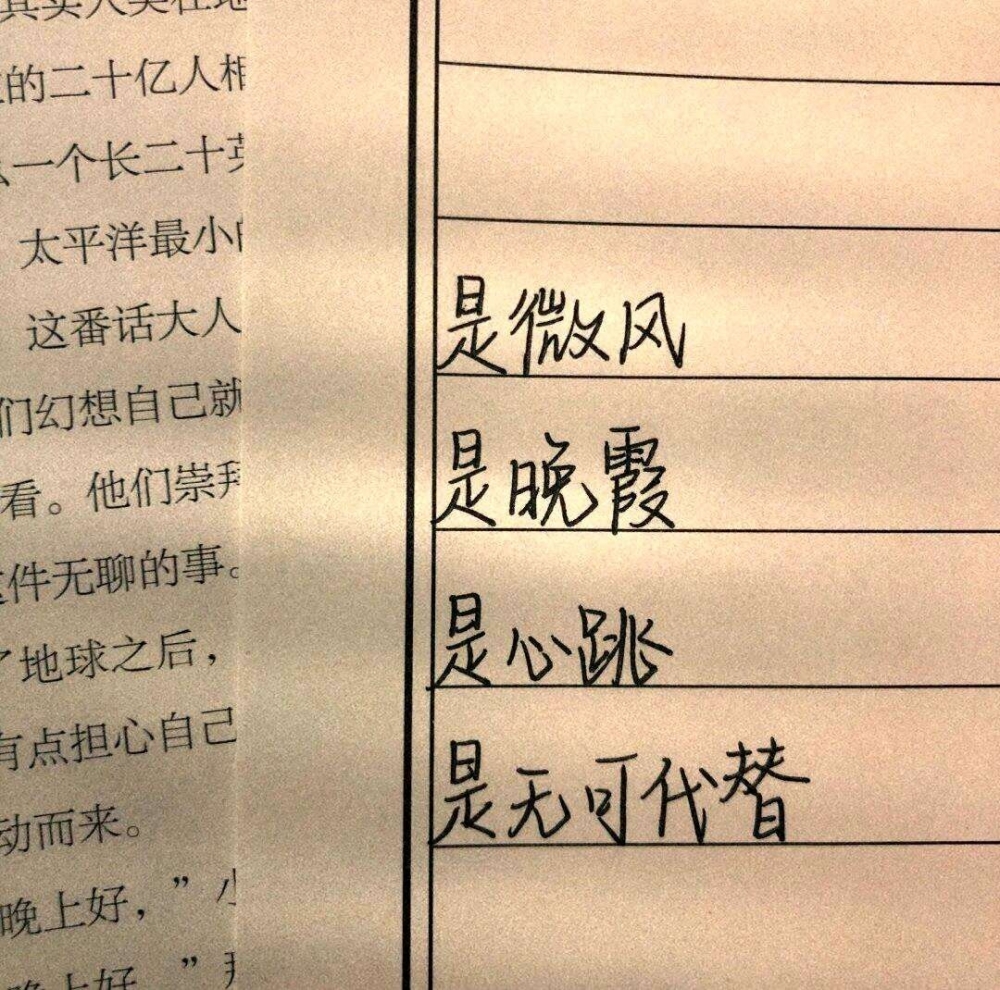 的二十亿人相
一个长二十英
太平洋最小的
这番话大人
们幻想自己就
看。他们崇拜
件无聊的事。
了地球之后，
有点担心自己
动而来。
晚上好，”小
晚上好，”
是微风
是晚霞
是心跳
是无可代替